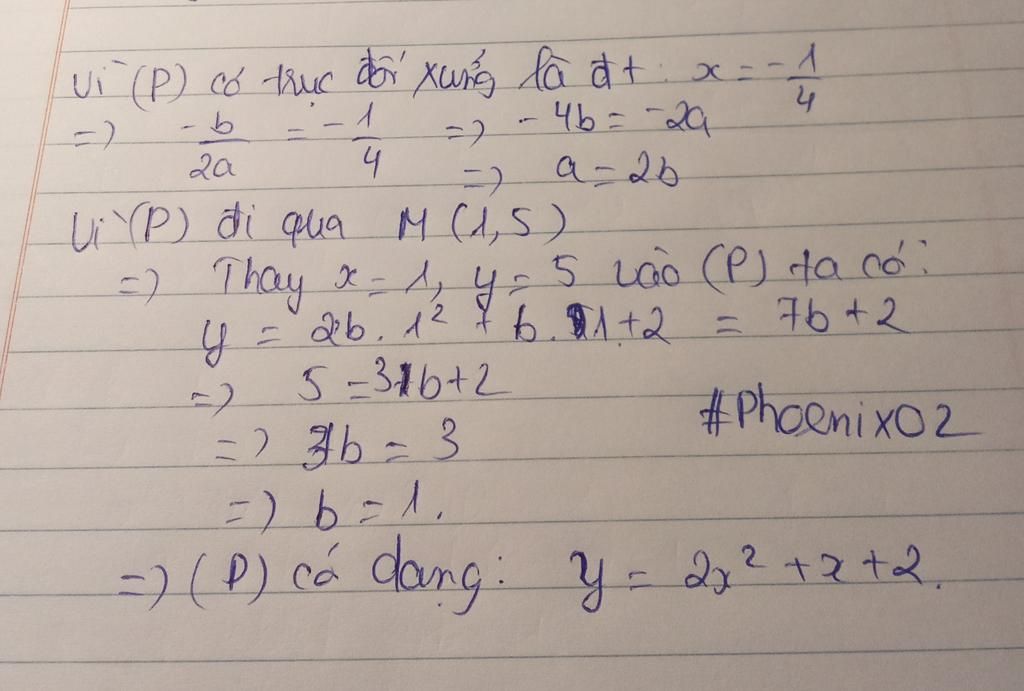 Vì (P) có trục đối xứng là đt: x = -1/4
=> -b/2a = -1/4 => -4b = -2a
=> a = 2b
Vì (P) đi qua M (1,5)
=> Thay x = 1, y = 5 vào (P) ta có:
y = 2b. 1² + b. 1 + 2 = 7b + 2
=> 5 = 3b + 2
#Phoenix02
=> 3b = 3
=> b = 1.
=> (P) có dạng: y = 2x² + x + 2.